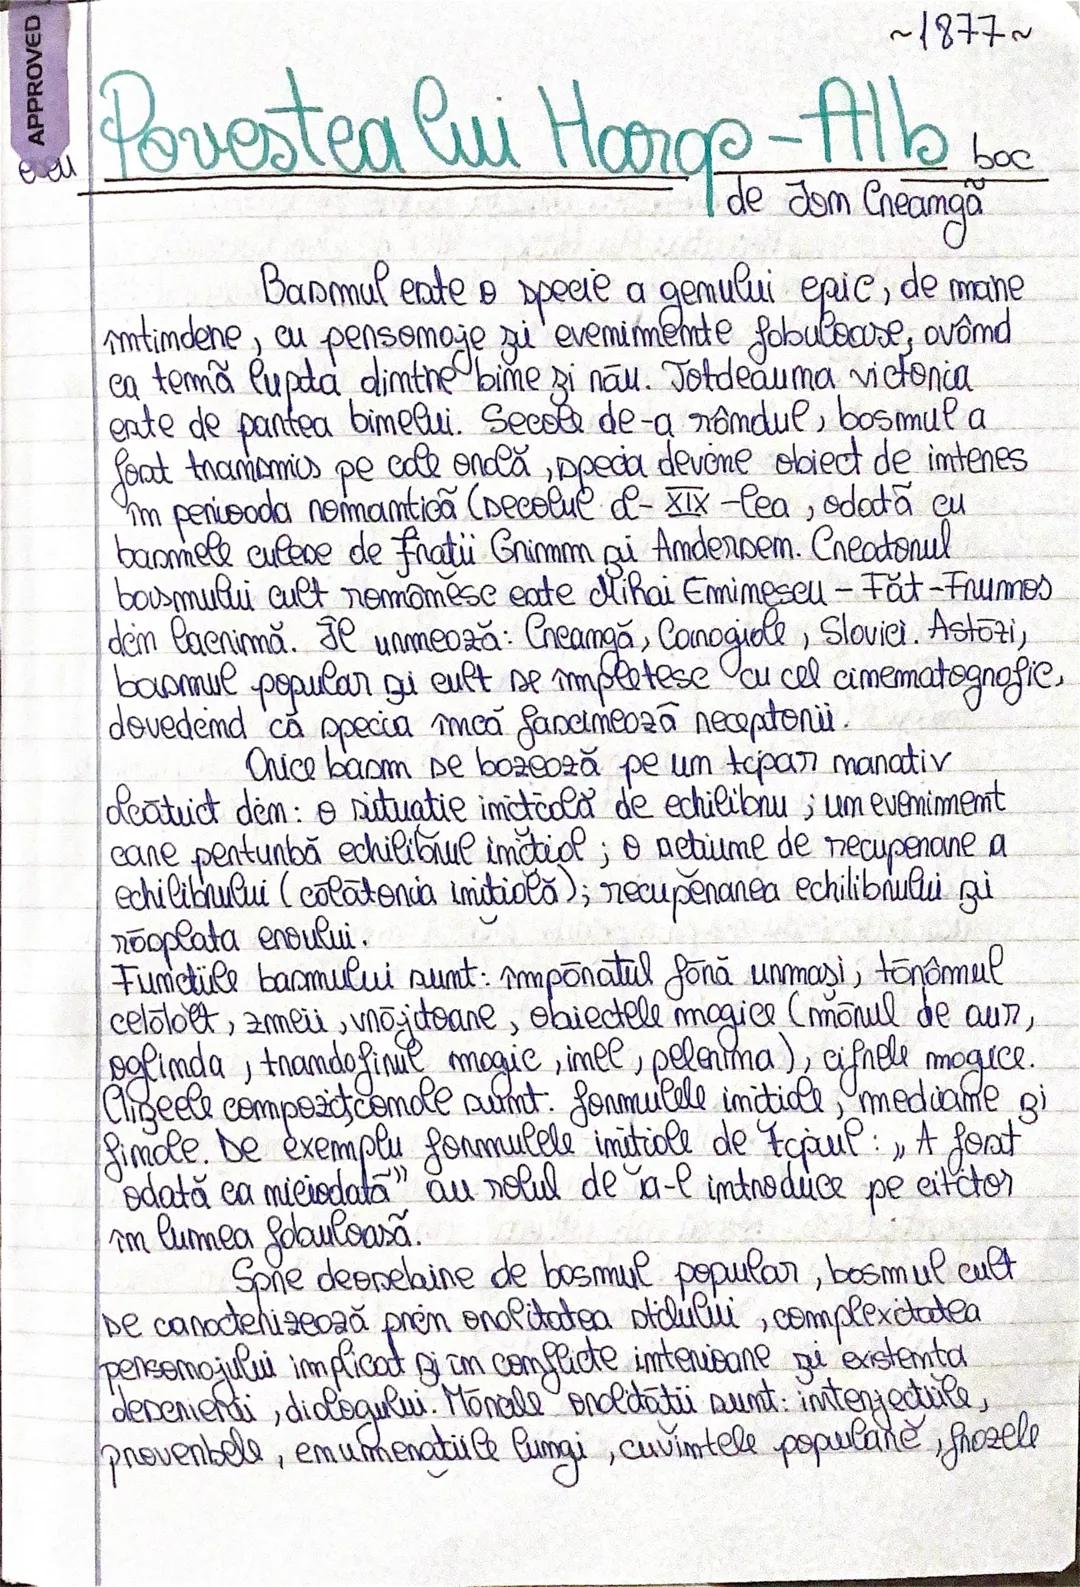 ~1877~
APPROVED
Povestea lui Harap-Alb bac
eseu
de Ion Creangă
Basmul este o specie a genului epic, de mare
întindere, cu personaje și evenimente fabuloase, având
ca temă lupta dintre bine și rău. Totdeauna victoria
este de partea binelui. Secole de-a rândul, basmul a
fost transmis pe cale orală, specia devine obiect de interes
în perioada romantică (secolul al-XIX-lea, odată cu
basmele culese de frații Grimm și Andersen. Creatorul
basmului cult românesc este Mihai Eminescu - Făt-Frumos
din lacrimă. Îl urmează: Creangă, Caragiale, Slavici. Astăzi,
basmul popular și cult se împletesc cu cel cinematografic,
dovedind că specia încă fascinează receptorii.
Orice basm se bazează pe un tipar narativ
alcătuit din: o situație inițială de echilibru; un eveniment
care perturbă echilibrul inițial; o acțiune de recuperare a
echilibrului (călătoria inițială); recuperarea echilibrului și
răsplata eroului.
Funcțiile basmului sunt: împăratul fără urmași, tărâmul
celălalt, zmeii, vrăjitoare, obiectele magice (mărul de aur,
oglinda, trandafirul magic, inel, pelerina), cifrele magice.
Clișeele compoziționale sunt: formulele inițiale, mediane și
finale. De exemplu formulele inițiale de tipul: „A fost
odată ca niciodată” au rolul de a-l introduce pe cititor
în lumea fabuloasă.
Spre deosebire de basmul popular, basmul cult
se caracterizează prin oralitatea stilului, complexitatea
personajului implicat și în conflicte interioare și existența
descrierii, dialogului. Mărcile oralității sunt: interjecțiile,
proverbele, enumerațiile lungi, cuvintele populare, frazele